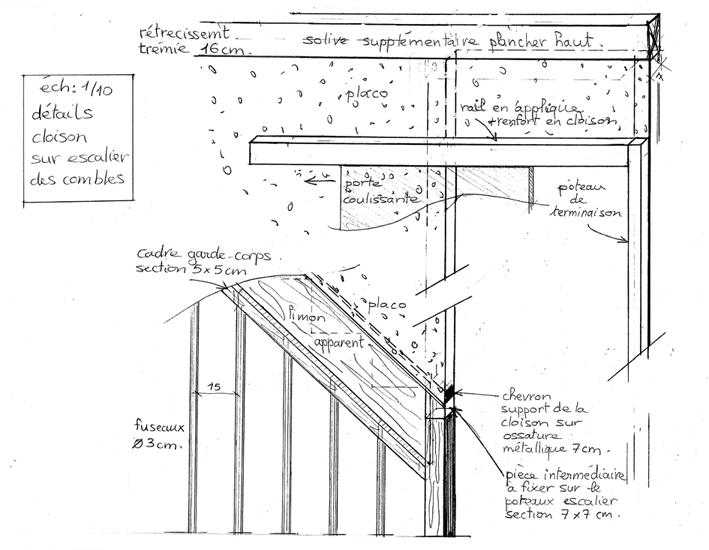 rétrecissemt
trémie 16cm.
solive supplémentaire plancher haut.
éch: 1/10
détails
cloison
sur escalier
des combles
placo
rail en applique
+renfort en cloison
porte
coulissante
poteau
de
terminaison
cadre garde-corps
section 5x5cm
limon
apparent
placo
15
fuseaux
Ø3cm.
chevron
support de la
cloison sur
ossature
métallique 7cm.
pièce intermédiaire
a fixer sur le
poteaux escalier
section 7x7cm.